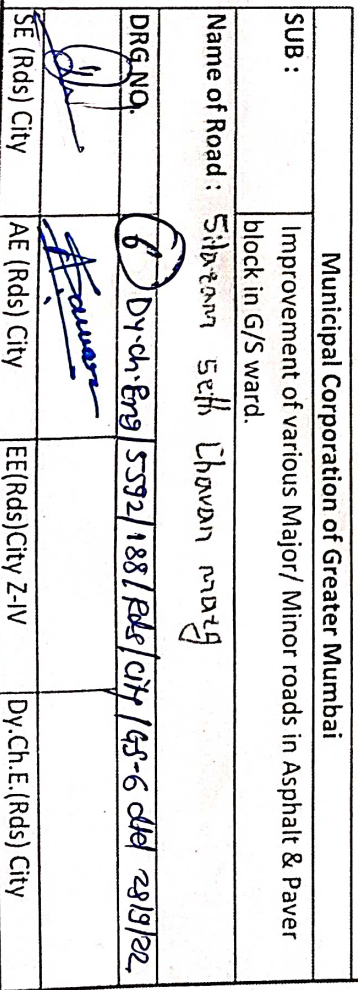 Municipal Corporation of Greater Mumbai
SUB : Improvement of various Major/ Minor roads in Asphalt & Paver
block in G/S ward.
Name of Road : Sitaram Seth Chavan marg
DRG NO. 6 Dy.ch.Eng/5592/188/Rds/City/GS-6 dtd 28/9/22
SE (Rds) City AE (Rds) City EE(Rds)City Z-IV Dy.Ch.E.(Rds) City